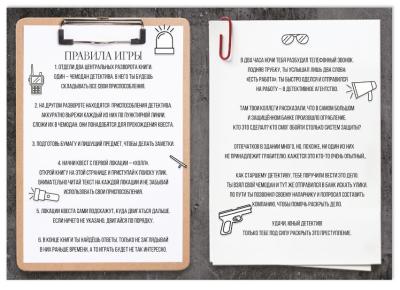 ПРАВИЛА ИГРЫ
1. ОТДЕЛИ ДВА ЦЕНТРАЛЬНЫХ РАЗВОРОТА КНИГИ.
ОДИН – ЧЕМОДАН ДЕТЕКТИВА. В НЕГО ТЫ БУДЕШЬ
СКЛАДЫВАТЬ ВСЕ СВОИ ПРИСПОСОБЛЕНИЯ.
2. НА ДРУГОМ РАЗВОРОТЕ НАХОДЯТСЯ ПРИСПОСОБЛЕНИЯ ДЕТЕКТИВА.
АККУРАТНО ВЫРЕЖИ КАЖДЫЙ ИЗ НИХ ПО ПУНКТИРНОЙ ЛИНИИ.
СЛОЖИ ИХ В ЧЕМОДАН. ОНИ ПОНАДОБЯТСЯ ДЛЯ ПРОХОЖДЕНИЯ КВЕСТА.
3. ПОДГОТОВЬ БУМАГУ И ПИШУЩИЙ ПРЕДМЕТ, ЧТОБЫ ДЕЛАТЬ ЗАМЕТКИ.
4. НАЧНИ КВЕСТ С ПЕРВОЙ ЛОКАЦИИ – «ХОЛЛ».
ОТКРОЙ КНИГУ НА ЭТОЙ СТРАНИЦЕ И ПРИСТУПАЙ К ПОИСКУ УЛИК.
ВНИМАТЕЛЬНО ЧИТАЙ ТЕКСТ НА КАЖДОЙ ЛОКАЦИИ И НЕ ЗАБЫВАЙ
ИСПОЛЬЗОВАТЬ СВОИ ПРИСПОСОБЛЕНИЯ.
5. ЛОКАЦИИ КВЕСТА САМИ ПОДСКАЖУТ, КУДА ДВИГАТЬСЯ ДАЛЬШЕ.
ЕСЛИ НИЧЕГО НЕ УКАЗАНО, ДВИГАЙСЯ ПО ПОРЯДКУ.
6. В КОНЦЕ КНИГИ ТЫ НАЙДЁШЬ ОТВЕТЫ. ТОЛЬКО НЕ ЗАГЛЯДЫВАЙ
В НИХ РАНЬШЕ ВРЕМЕНИ, А ТО ИГРАТЬ БУДЕТ НЕ ТАК ИНТЕРЕСНО.
В ДВА ЧАСА НОЧИ ТЕБЯ РАЗБУДИЛ ТЕЛЕФОННЫЙ ЗВОНОК.
ПОДНЯВ ТРУБКУ, ТЫ УСЛЫШАЛ ЛИШЬ ДВА СЛОВА:
«ЕСТЬ РАБОТА». ТЫ БЫСТРО ОДЕЛСЯ И ОТПРАВИЛСЯ
НА РАБОТУ – В ДЕТЕКТИВНОЕ АГЕНТСТВО.
ТАМ ТВОИ КОЛЛЕГИ РАССКАЗАЛИ, ЧТО В САМОМ БОЛЬШОМ
И ЗАЩИЩЁННОМ БАНКЕ ПРОИЗОШЛО ОГРАБЛЕНИЕ.
КТО ЭТО СДЕЛАЛ? КТО СМОГ ОБОЙТИ СТОЛЬКО СИСТЕМ ЗАЩИТЫ?
ОТПЕЧАТКОВ В ЗДАНИИ МНОГО, НО, ПОХОЖЕ, НИ ОДИН ИЗ НИХ
НЕ ПРИНАДЛЕЖИТ ГРАБИТЕЛЮ. КАЖЕТСЯ ЭТО КТО-ТО ОЧЕНЬ ОПЫТНЫЙ..
КАК СТАРШЕМУ ДЕТЕКТИВУ, ТЕБЕ ПОРУЧИЛИ ВЕСТИ ЭТО ДЕЛО.
ТЫ ВЗЯЛ СВОЙ ЧЕМОДАН И ТУТ ЖЕ ОТПРАВИЛСЯ В БАНК ИСКАТЬ УЛИКИ.
ПО ПУТИ ТЫ ПОЗВОНИЛ СВОЕМУ НАПАРНИКУ И ПОПРОСИЛ СОСТАВИТЬ
КОМПАНИЮ, ЧТОБЫ ПОМОЧЬ РАСКРЫТЬ ДЕЛО.
УДАЧИ, ЮНЫЙ ДЕТЕКТИВ!
ТОЛЬКО ТЕБЕ ПОД СИЛУ РАСКРЫТЬ ЭТО ПРЕСТУПЛЕНИЕ.